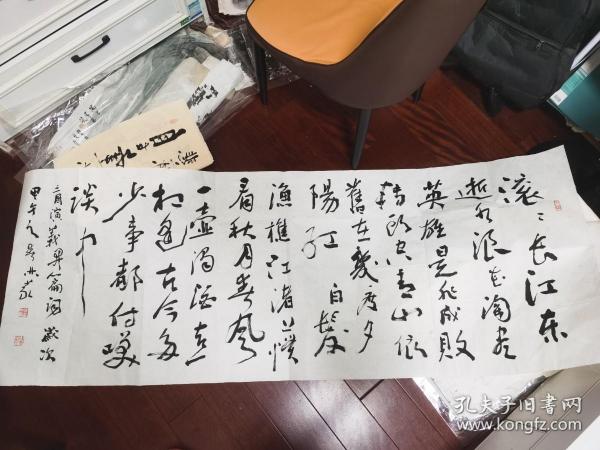 滚滚长江东
逝水浪花淘尽
英雄是非成败
转头空青山依
旧在几度夕
阳红 白发
渔樵江渚上惯
看秋月春风
一壶浊酒喜
相逢古今多
少事都付笑
谈中
三国演义卷首词 岁次
甲午
孔夫子旧书网
www.kongfz.com